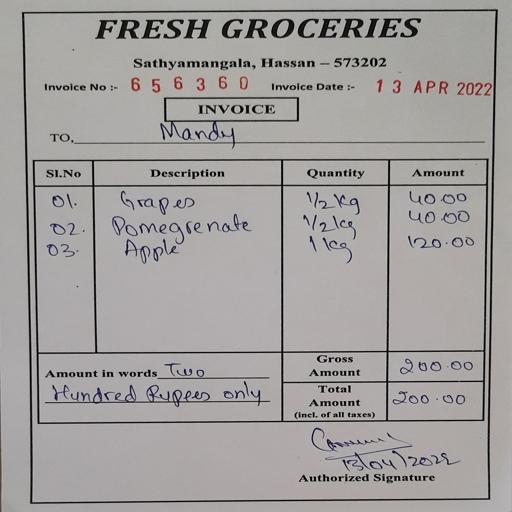 FRESH GROCERIES
Sathyamangala, Hassan – 573202
Invoice No :- 656360 Invoice Date :- 13 APR 2022
INVOICE
TO, Mandy
Sl.No Description Quantity Amount
01. Grapes 1/2 kg 40.00
02. Pomegrenate 1/2 kg 40.00
03. Apple 1 kg 120.00
Amount in words Two
Hundred Rupees only
Gross
Amount 200.00
Total
Amount 200.00
(incl. of all taxes)
13/04/2022
Authorized Signature